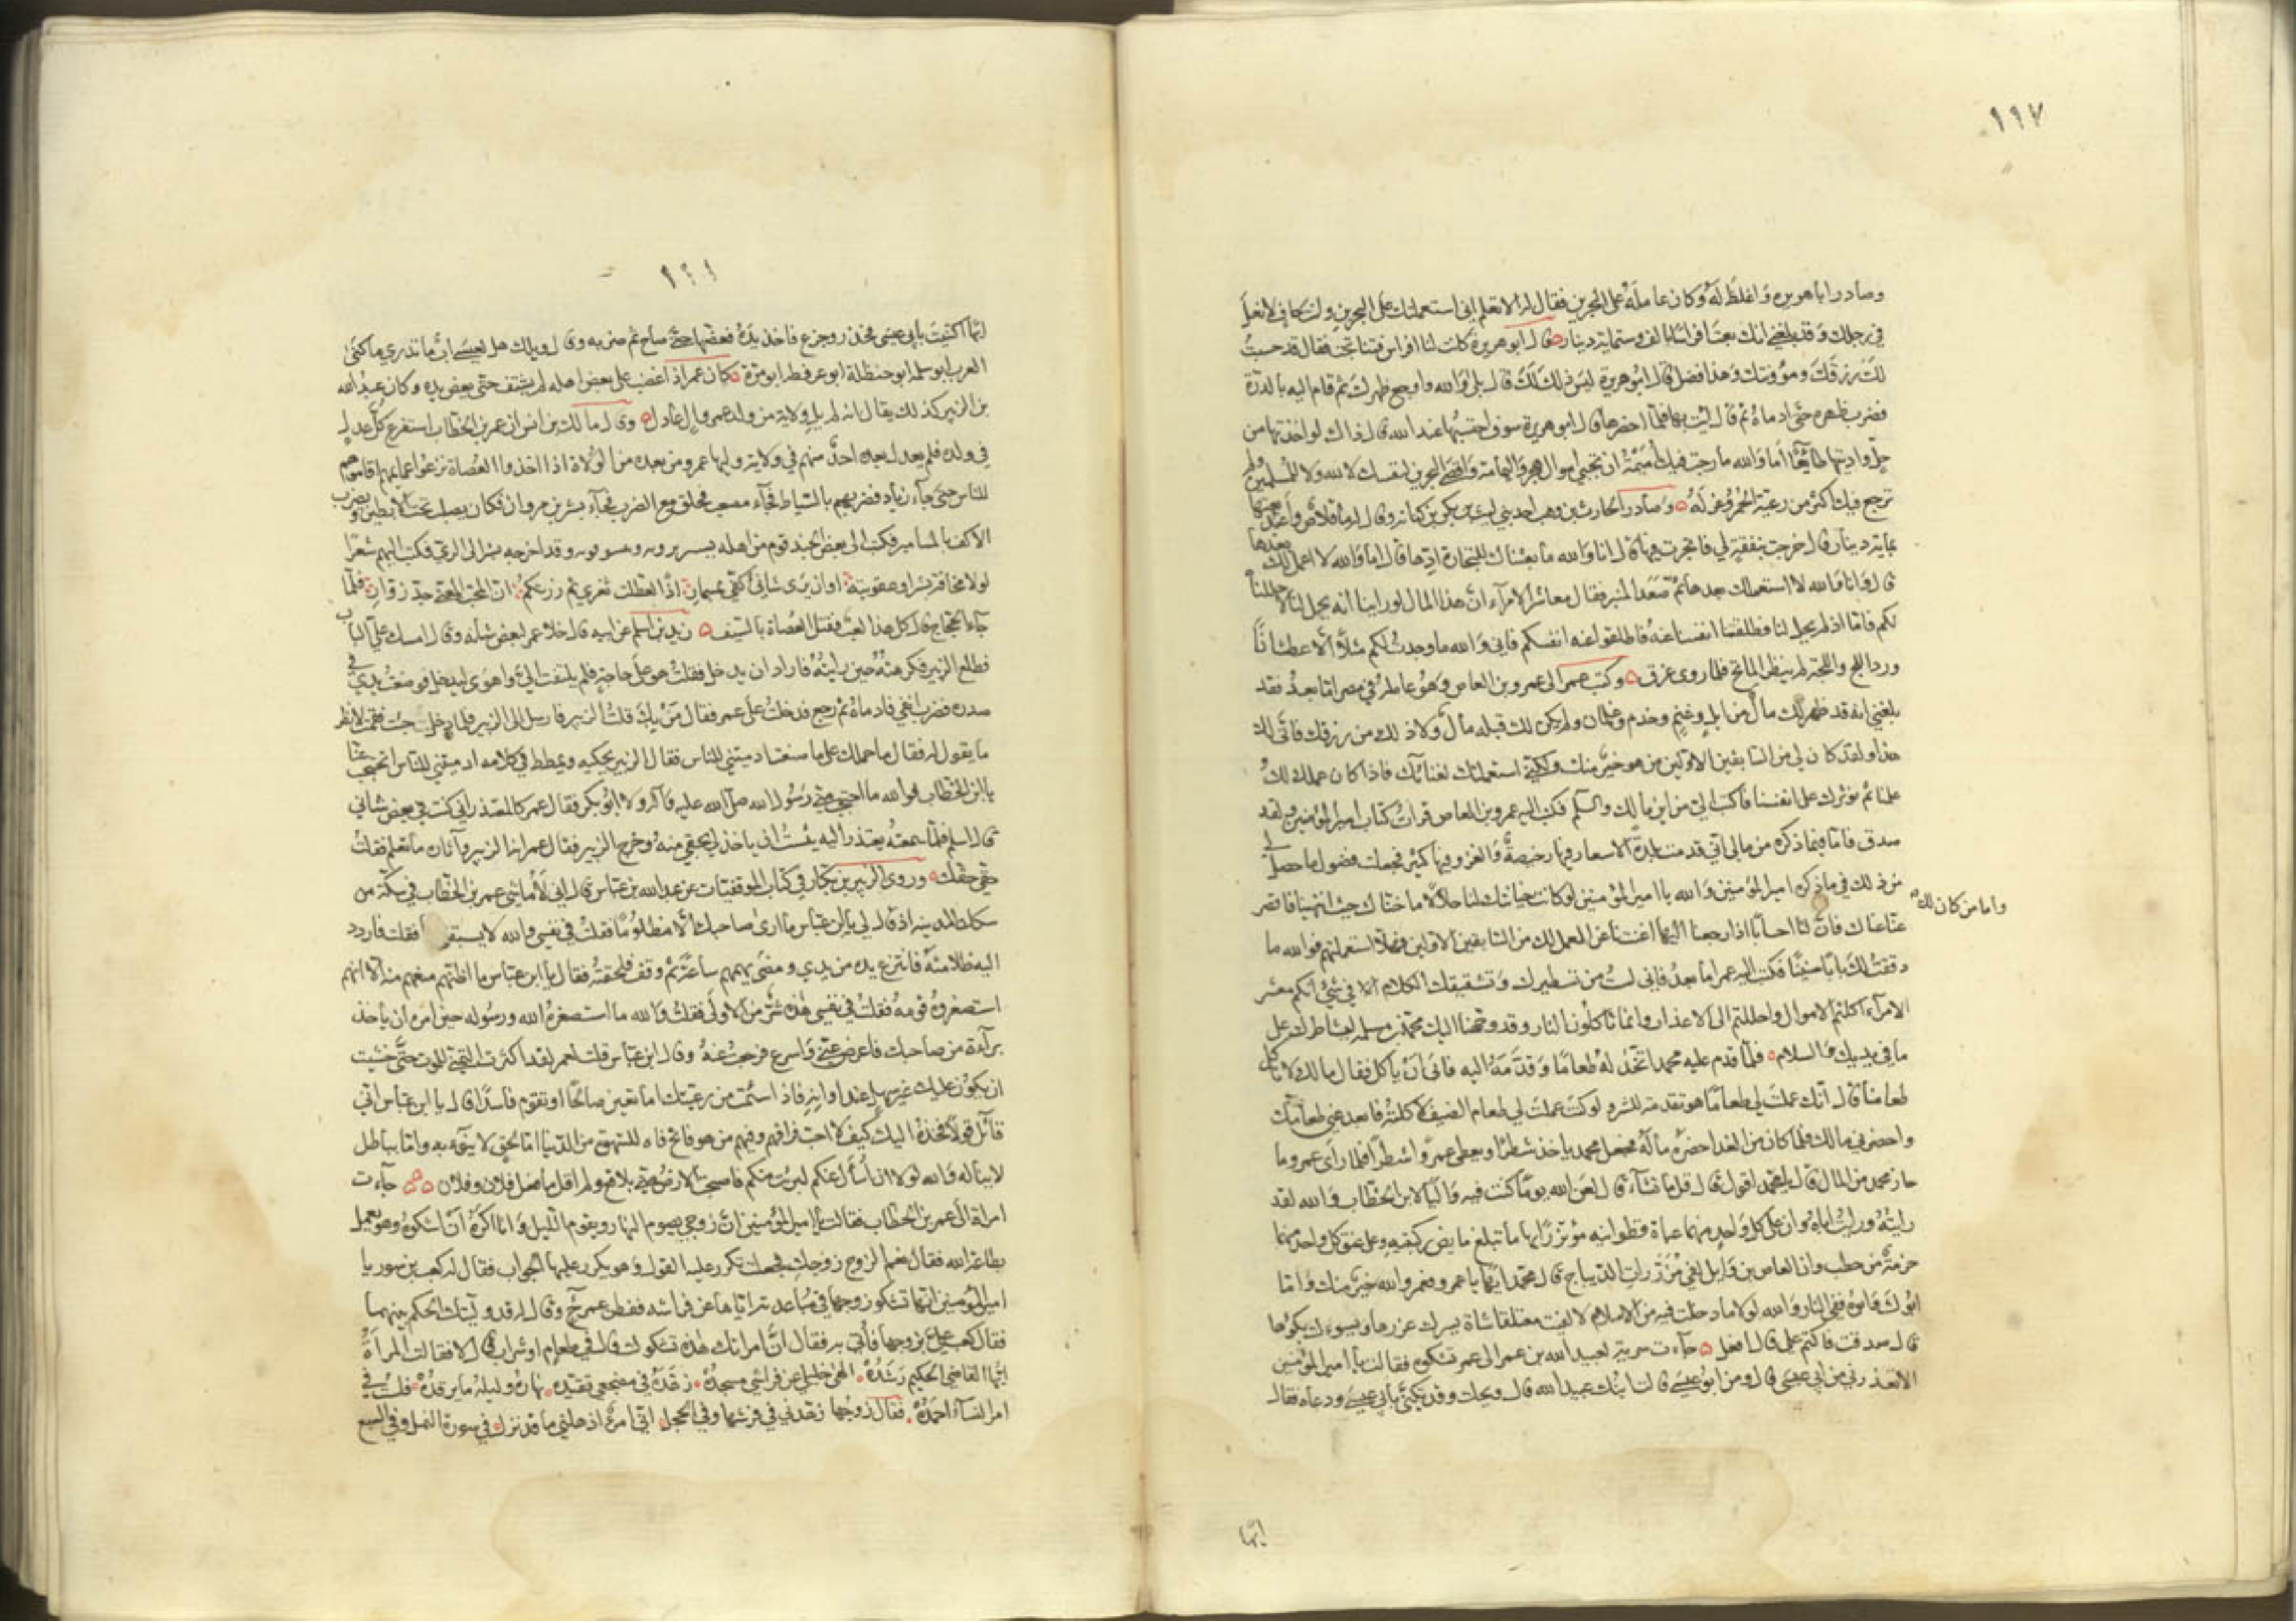 ١١٧
وصادر اباهريره وَاغلظَ لَهُ وكان عامله على البحرين فقال له الا تعلم انى استعملتك على البحرين وانت حاف لا نعل
في رجلك وقد بلغني انك بعت افراسا بالف وستماية دينار قال ابو هريرة كانت لنا افراس فتناتجت فقال قد حبست
لك رزقك ومؤونتك وهذا فضل قال ابو هريرة ليس ذلك لك قال بلى والله واوجع ظهرك ثم قام اليه بالدرة
فضرب ظهره حتى ادماه ثم قال ايت بها فلما احضرها قال ابو هريرة سوف احتسبها عند الله قال ذاك لو اخذتها من
حل واديتها طائعا اما والله ما رجت فيك اميمة ان تجبي اموال هجر واليمامة واقصى البحرين لنفسك لا لله ولا للمسلمين ولم
ترجع فيك اكثر من رعية الحمر وعزله وصادر الحارث بن وهب احد بني ليث بن بكر بن كنانه وقال له ما قلاص واعبد بعتها
بماية دينار قال خرجت بنفقة لي فاتجرت فيها قال انا والله ما بعثناك للتجارة ادها قال اما والله لا اعمل لك بعدها
قال وانا والله لا استعملك بعدها ثم صعد المنبر فقال معاشر الامراء ان هذا المال لو راينا انه يحل لنا لاحللناه
لكم فاما اذ لم يحل لنا وظلفنا انفسنا عنه فاظلفوا عنه انفسكم فاني والله ما وجدت لكم مثلا الا عطشانا
ورد اللج واللجة لم ينظر الماتح فلما روى غرق وكتب عمر الى عمرو بن العاص وهو عامله في مصر اما بعد فقد
بلغني انه قد ظهر لك مال من ابل وغنم وخدم وغلمان ولم يكن لك قبله مال ولا ذلك من رزقك فانى لك
هذا ولقد كان لي من السابقين الاولين من هو خير منك ولكني استعملتك لغنائك فاذا كان عملك لك
علينا ثم نؤثرك على انفسنا فاكتب الي من اين مالك والسلم فكتب اليه عمرو بن العاص قرات كتاب امير المؤمنين ولقد
صدق فاما فيما ذكره من مالي اني قدمت بلدة الاسعار فيها رخيصة والغزو فيها كثير فجعلت فضول ما حصل لي
من ذلك في ما ذكره امير المؤمنين والله يا امير المؤمنين لو كانت خيانتك لنا حلالا ما خناك حيث ائتمنتنا فاقصر
واما من كان لك
عنا عناك فان لنا احسابا اذا رجعنا اليها اغنتنا عن العمل لك من السابقين الاولين فهلا استعملتهم فوالله ما
دققت لك بابا فكتب اليه عمر اما بعد فاني لست من تسطيرك وتشقيقك الكلام الا في شي انكم معشر
الامراء اكلتم الاموال واحللتم الى الاعذار وانما تاكلون النار وقد وجهنا اليك محمد بن مسلمه ليشاطرك على
ما في يديك والسلام فلما قدم عليه محمد اتخذ له طعاما وقدمه اليه فابى ان ياكل فقال مالك لا تاكل
طعامنا قال انك عملت لي طعاما هو تقدمة للشر ولو كنت عملت لي طعام الضيف لاكلته فابعد عني طعامك
واحضرني مالك فلما كان من الغد احضره ماله فجعل محمد ياخذ شطرا ويعطى عمرا شطرا فلما راى عمرو ما
حاز محمد من المال قال يا محمد اقول قال قل ما تشاء قال لعن الله يوما كنت فيه واليا لابن الخطاب والله لقد
رايته ورايت اباه وان على كل واحد منهما عباة قطوانيه مؤتزرا بها ما تبلغ مابض ركبتيه وعلى عنق كل واحد منهما
حزمة من حطب وان العاص بن وايل لفي مزررات الديباج قال محمد ايها يا عمرو فعمر والله خير منك واما
ابوك وابوه ففي النار والله لولا ما دخلت فيه من الاسلام لالفيت معتلقا شاة يسرك غزرها ويسوءك بكؤها
قال صدقت فاكتم علي قال افعل جاءت سرية لعبيد الله بن عمر الى عمر تشكوه فقالت يا امير المؤمنين
الا تعذرني من ابي عيسى قال ومن ابو عيسى قالت ابنك عبيد الله قال ويحك وقد تكنى بابي عيسى ودعاه فقال
ايها
ايها اكتنيت بابي عيسى فحذر وجزع فاخذ يده فعضها حتى صاح ثم ضربه وقال ويلك هل لعيسى اب ما تدري ما كنى
العرب ابو سلمه ابو حنظلة ابو عرفطه ابو مرة كان عمر اذا غضب على بعض اهله لم يشتف حتى يعض يده وكان عبد الله
بن الزبير كذلك يقال انه لم يل ولاية من ولد عمر وال عادل وقال مالك بن انس ان عمر بن الخطاب استفرغ كل عدل
في ولده فلم يعدل بعده احد منهم في ولايته وليها عمر ومن بعده من الولاة اذا اخذوا العصاة نزعوا عمايمهم واقاموهم
للناس حتى جاء زياد فضربهم بالسياط فجاء مصعب فحلق مع الضرب فجاء بشر بن مروان فكان يصلب تحت الابطين ويضرب
الاكف بالمسامير فكتب الى بعض الجند قوم من اهله يستزيرونه ويتشوقونه وقد اخرجه بشر الى الري فكتب اليهم شعرا
لولا مخافة بشر او عقوبته او ان يرى شانئ كفي بمسمار اذا لعطلت ثغري ثم زرتكم ان المحب المعنى جد زوار فلما
جاء الحجاج قال كل هذا لعب فقتل العصاة بالسيف زيد بن اسلم عن ابيه قال خلا عمر لبعض شانه وقال امسك علي الباب
فطلع الزبير فكرهته حين رايته فاراد ان يدخل فقلت هو على حاجة فلم يلتفت الي واهوى ليدخل فوضعت يدي في
صدره فضرب انفي فادماه ثم رجع فدخلت على عمر فقال من بك قلت الزبير فارسل الى الزبير فلما دخل جئت فقمت لانظر
ما يقول له فقال ما حملك على ما صنعت ادميتني للناس فقال الزبير يحكيه ويمطط في كلامه ادميتني للناس اتحتجب عنا
يا ابن الخطاب فوالله ما احتجب مني رسول الله صلى الله عليه وآله ولا ابو بكر فقال عمر كالمعتذر اني كنت في بعض شاني
قال اسلم فلما سمعته يعتذر اليه يئست ان ياخذ لي بحقي منه وخرج الزبير فقال عمر انه الزبير وآثاره ما تعلم فقلت
حقي حقك وروى الزبير بن بكار في كتاب الموفقيات عن عبد الله بن عباس قال اني لاماشي عمر بن الخطاب في سكة من
سكك المدينه اذ قال لي يا ابن عباس ما ارى صاحبك الا مظلوما فقلت في نفسي والله لا يسبقني فقلت فاردد
اليه ظلامته فانتزع يده من يدي ومضى يهمهم ساعة ثم وقف فلحقته فقال يا ابن عباس ما اظنهم منعهم منه الا انهم
استصغروه قومه فقلت في نفسي هذه شر من الاولى فقلت والله ما استصغره الله ورسوله حين امره ان ياخذ
براءة من صاحبك فاعرض عني واسرع فرجعت عنه وقال ابن عباس قلت لعمر لقد اكثرت التمني للموت حتى خشيت
ان يكون عليك غير سهل عند اوانه فماذا سئمت من رعيتك اما تعين صالحا او تقوم فاسدا قال يا ابن عباس اني
قائل قولا فخذه اليك كيف لا احب فراقهم وفيهم من هو فاتح فاه للشهوة من الدنيا اما لحق لا ينوء به واما لباطل
لا يناله والله لولا ان اسأل عنكم لبرئت منكم فاصبحت الارض مني بلاقع ولم اقل ما فعل فلان وفلان جاءت
امراة الى عمر بن الخطاب فقالت يا امير المؤمنين ان زوجي يصوم النهار ويقوم الليل وانا اكره ان اشكوه وهو يعمل
بطاعة الله فقال نعم الزوج زوجك فجعلت تكرر عليه القول وهو يكرر عليها الجواب فقال له كعب بن سور يا
امير المؤمنين انها تشكو زوجها في مباعدته اياها عن فراشه ففطن عمر ح وقال له قد وليتك الحكم بينهما
فقال كعب علي بزوجها فاتي به فقال ان امراتك هذه تشكوك قال في طعام او شراب قال لا فقالت المراة
ايها القاضي الحكيم رشده الهى خليلي عن فراشي مسجده زهده في مضجعي تعبده نهاره وليله ما يرقده فلست في
امر النساء احمده فقال زوجها زهدني في فرشها وفي الحجل اني امرؤ اذهلني ما قد نزل في سورة النمل وفي السبع